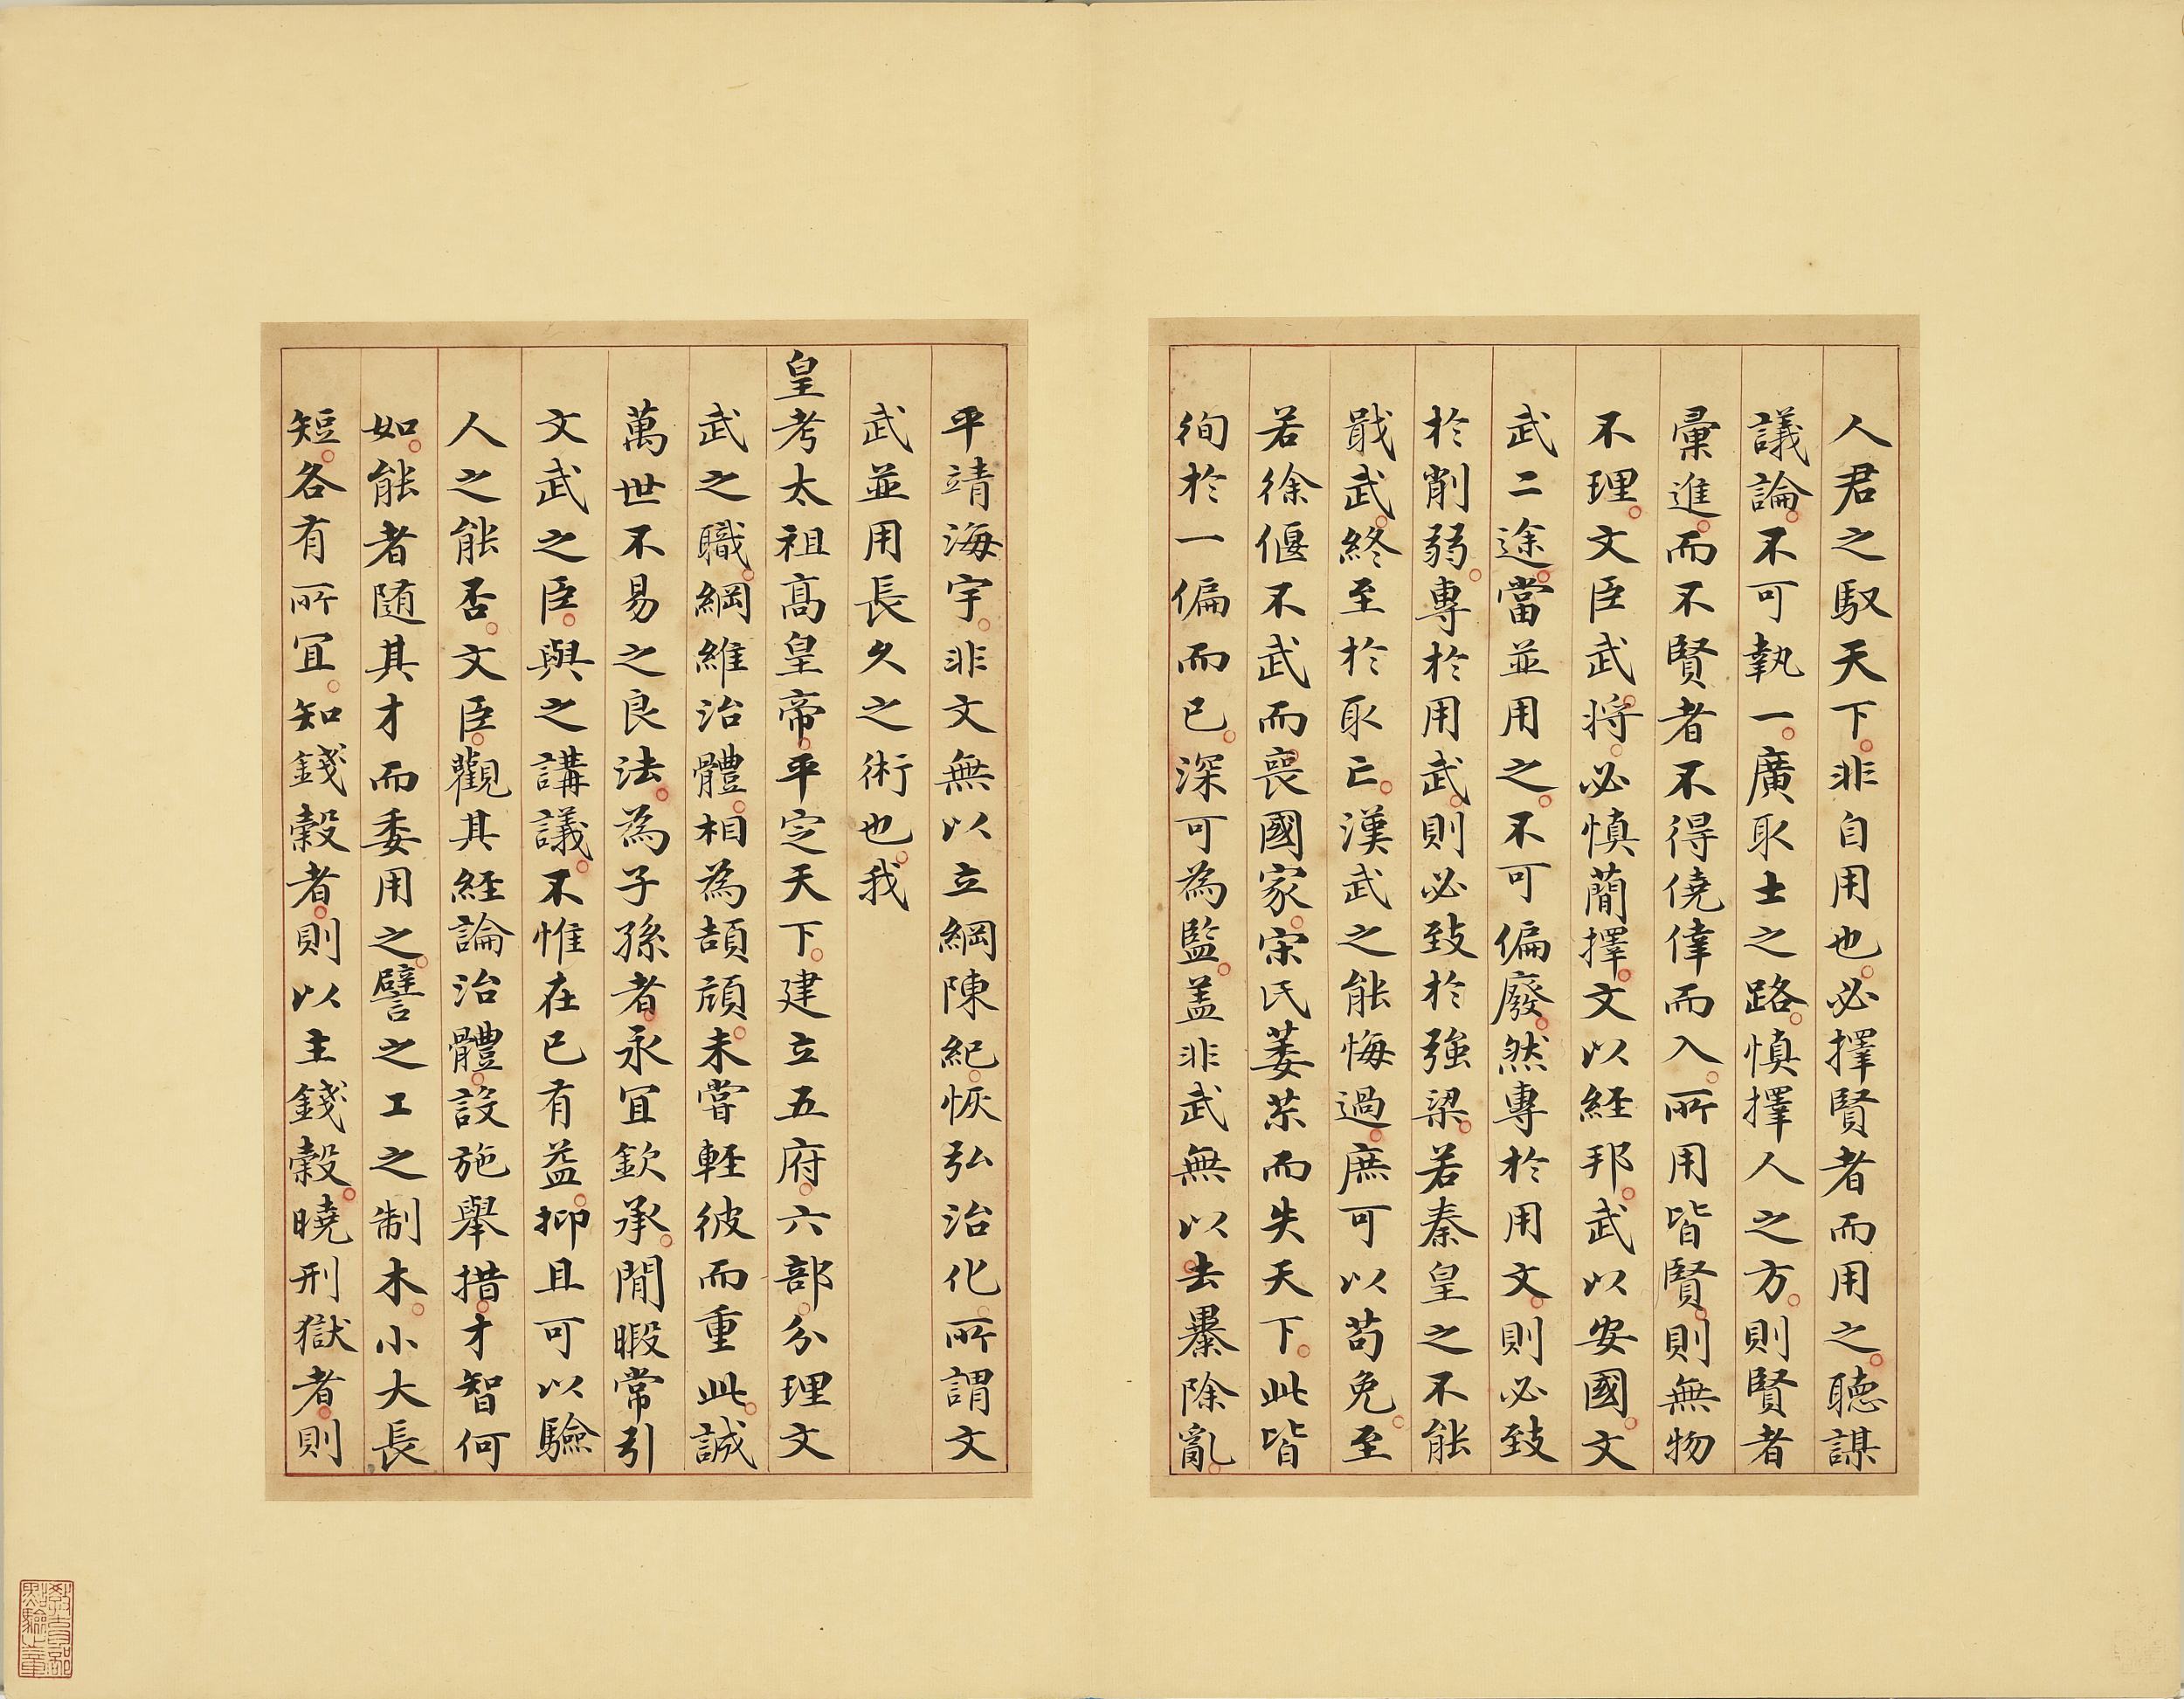 人君之馭天下非自用也必擇賢者而用之聽謀
議論不可執一廣取士之路慎擇人之方則賢者
彙進而不賢者不得僥倖而入所用皆賢則無物
不理文臣武將必慎蕳擇文以經邦武以安國文
武二途當並用之不可偏廢然專於用文則必致
於削弱專於用武則必致於強梁若秦皇之不能
戢武終至於取亡漢武之能悔過庶可以苟免至
若徐偃不武而喪國家宋氏萎苶而失天下此皆
徇於一偏而已深可為監盖非武無以去㬥除亂
平靖海宇非文無以立綱陳紀恢弘治化所謂文
武並用長久之術也我
皇考太祖高皇帝平定天下建立五府六部分理文
武之職綱維治體相為頡頏未嘗輕彼而重此誠
萬世不易之良法為子孫者永宜欽承閒暇常引
文武之臣與之講議不惟在已有益抑且可以驗
人之能否文臣觀其經論治體設施舉措才智何
如能者随其才而委用之譬之工之制木小大長
短各有所宜知錢穀者則以主錢穀曉刑獄者則
教育部點驗之章